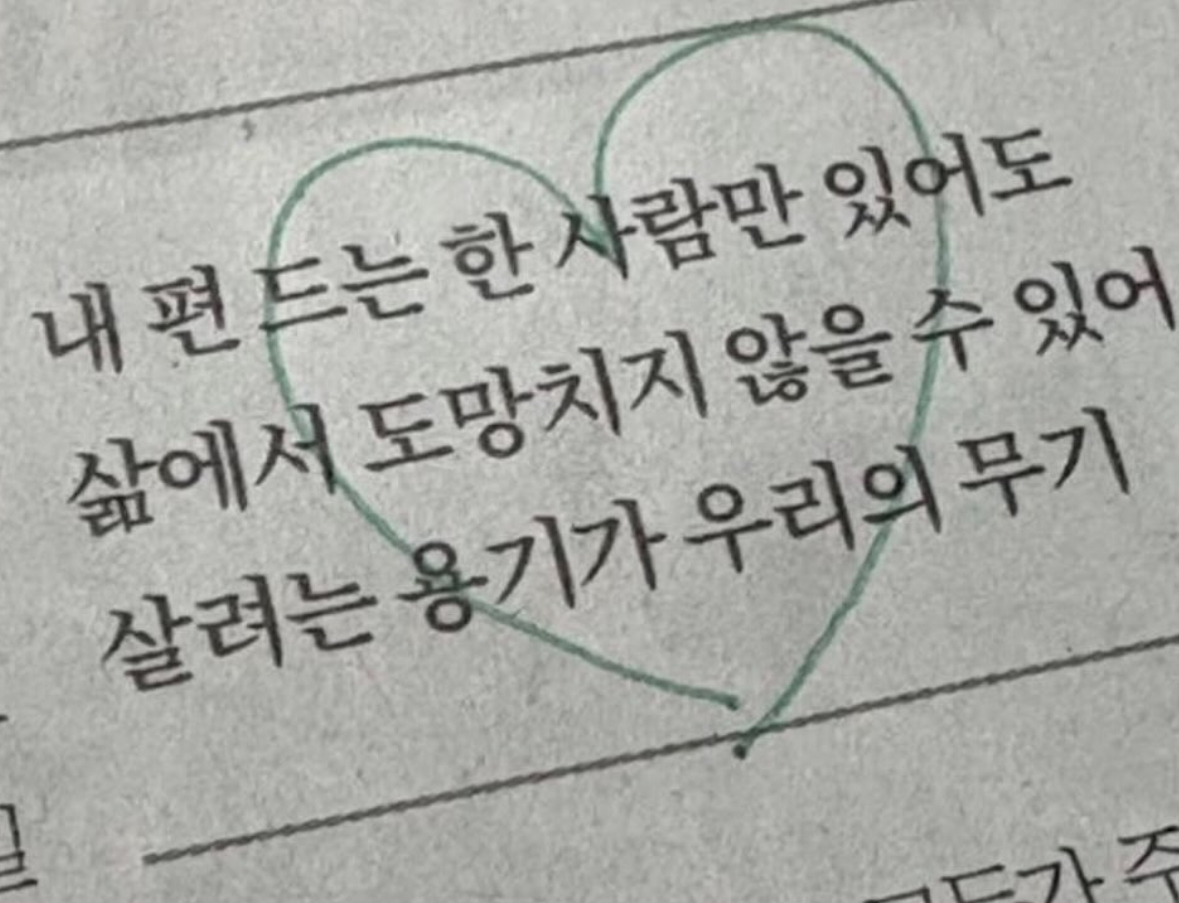 내 편 드는 한 사람만 있어도
삶에서 도망치지 않을 수 있어
살려는 용기가 우리의 무기